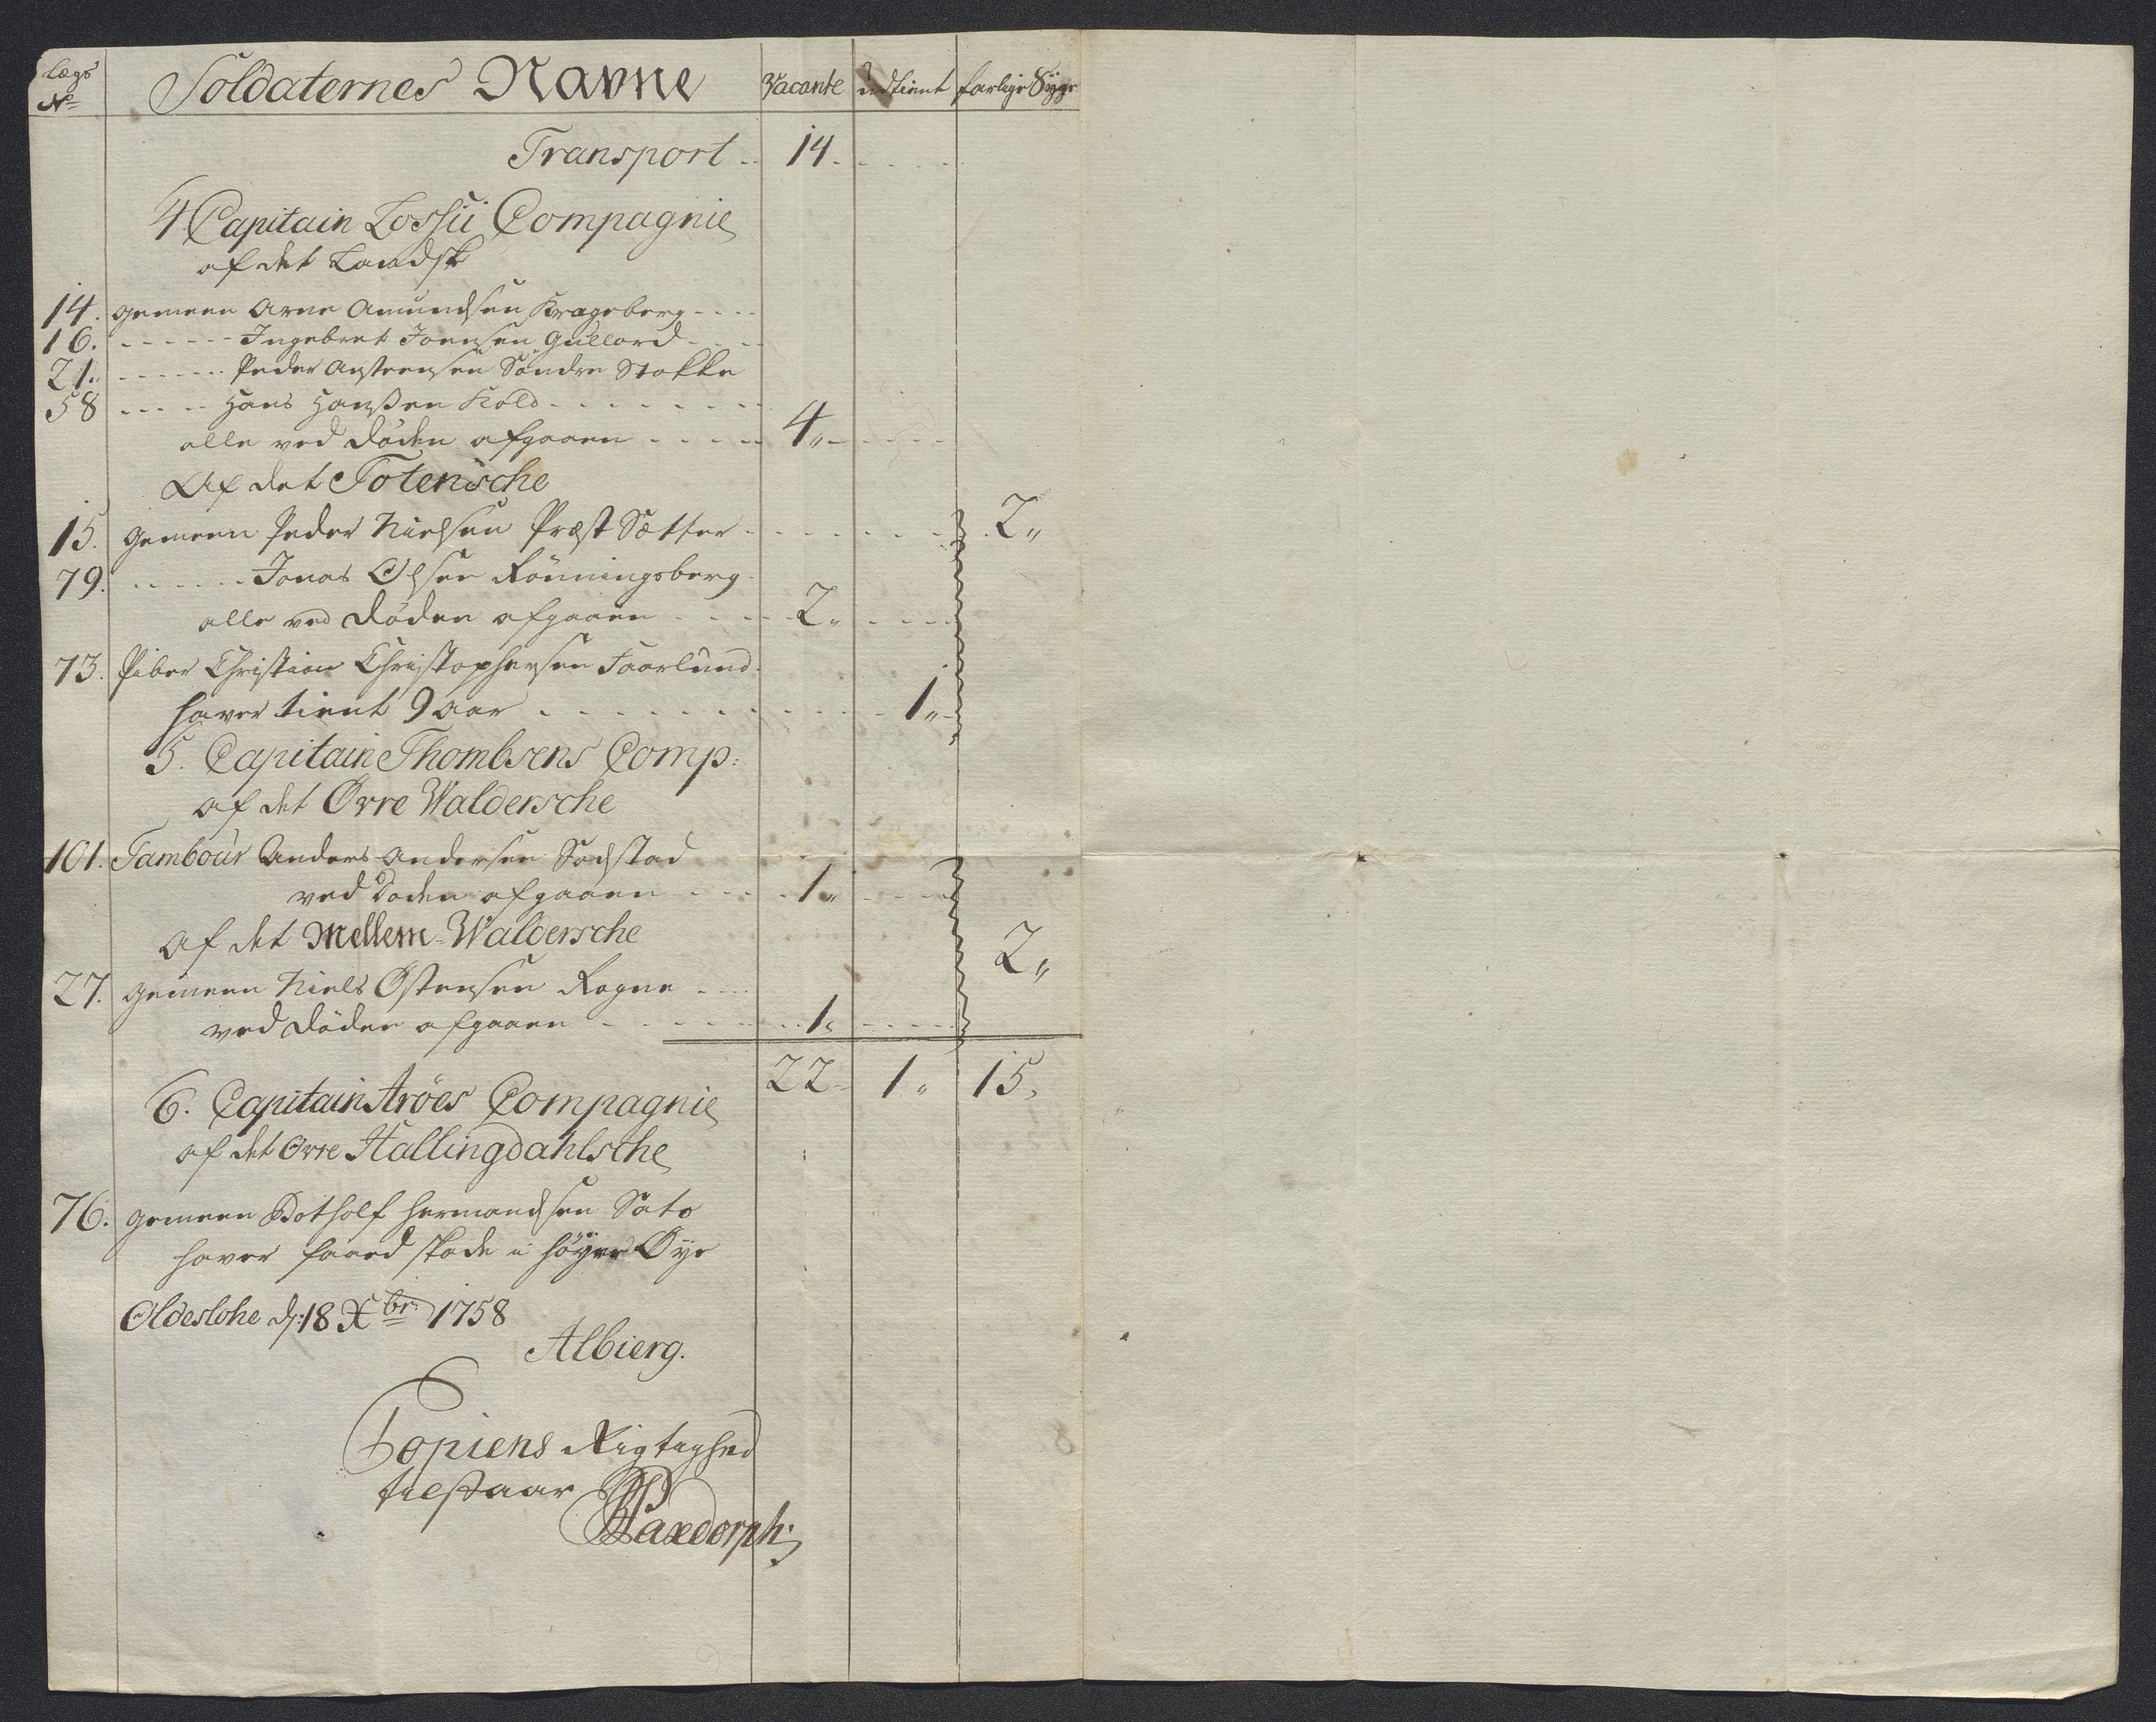 Lægs No Soldaternes Navne Vacante udtient farlige Syge
Transport .. 14.
4 Capitain Lossii Compagnie
af det Landsk
14. gemeen Arne Amundsen Krageberg
16. Ingebret Joensen Gullord
21. Peder Anstensen Söndre Stokke
58 Hans Hanßen Kold
alle ved döden afgaaen 4"
Af det Totensche
15. gemeen Peder Nielsen Præst Sætter 2"
79. Jonas Olsen Rönningsberg
alle ved döden afgaaen 2"
73. Piber Christian Christophersen Faarlund
haver tient 9 aar 1"
5. Capitain Thombsens Comp:
af det Ovre Waldersche
101. Tambour Anders Andersen
ved Döden afgaaen 1"
Af det Mellem-Waldersche 2"
27. gemeen Niels Östensen Rogne
ved döden afgaaen 1"
22 1" 15"
6. Capitain Aröes Compagnie
af det Ovre Hallingdahlsche
76. gemeen Botholf Hermandsen Sato
haver faaed skade i höyre Öye
Oldeslohe d: 18 Xbr: 1758
Albierg.
Copiens Rigtighed
tilstaar
Paxdorph